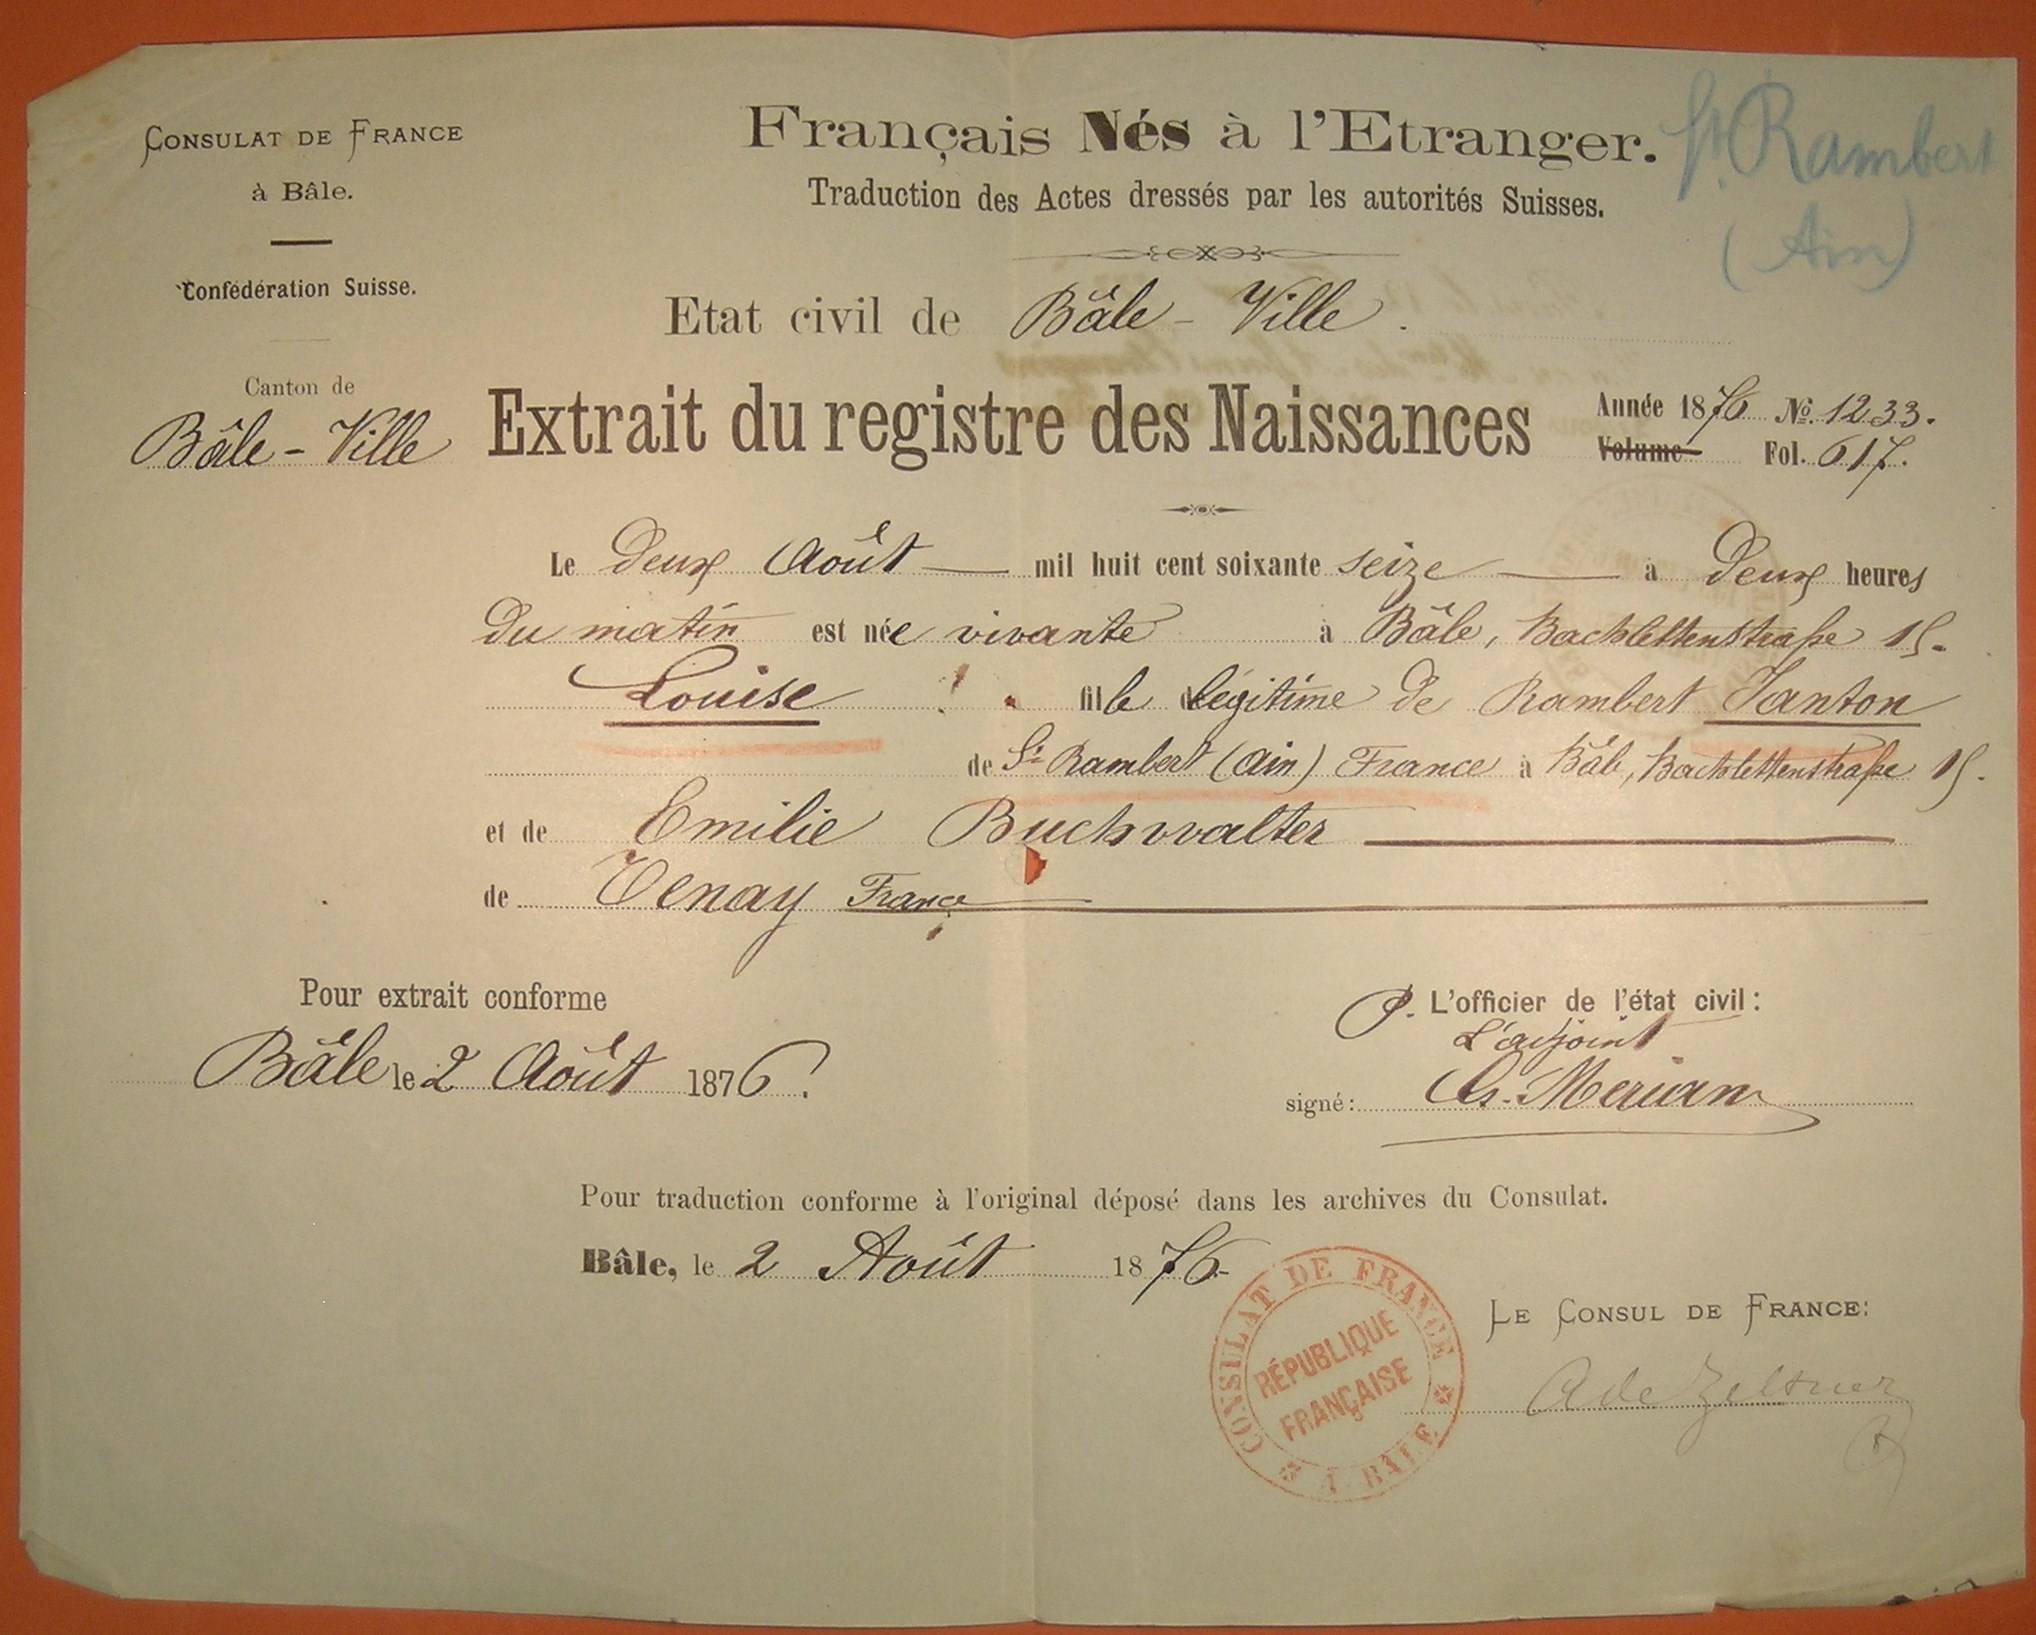 CONSULAT DE FRANCE
à Bâle.
Confédération Suisse.
Canton de
Bâle - Ville
Français Nés à l'Etranger.
Traduction des Actes dressés par les autorités Suisses.
St. Rambert
(Ain)
Etat civil de Bâle - Ville.
Extrait du registre des Naissances
Année 1876 No. 1233.
Volume Fol. 617.
Le deux Août mil huit cent soixante seize à deux heures
du matin est née vivante à Bâle, Bachlettenstraße 15.
Louise fille légitime de Rambert Janton
de St. Rambert (Ain) France à Bâle, Bachlettenstraße 15.
et de Emilie Buchwalter
de Tenay France
Pour extrait conforme
Bâle le 2 Août 1876.
P. L'officier de l'état civil:
L'adjoint
signé: Merian
Pour traduction conforme à l'original déposé dans les archives du Consulat.
Bâle, le 2 Août 1876.
CONSULAT DE FRANCE
À BÂLE
RÉPUBLIQUE
FRANÇAISE
LE CONSUL DE FRANCE:
A de Zeltner